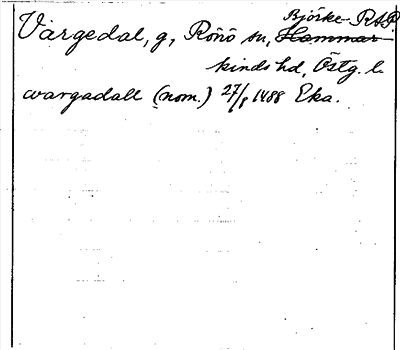 Vargedal, g, Rönö sn, ~~Hammar~~ Björke- RAP
kinds hd, Östg. l.
wargadall (nom.) 27/8 1488 Eka.